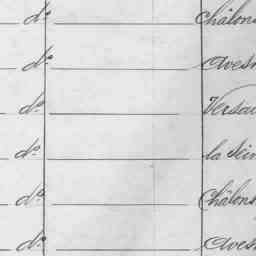 do Châlons
do Aves
do Versa
do la Sein
do Châlons
do Aves